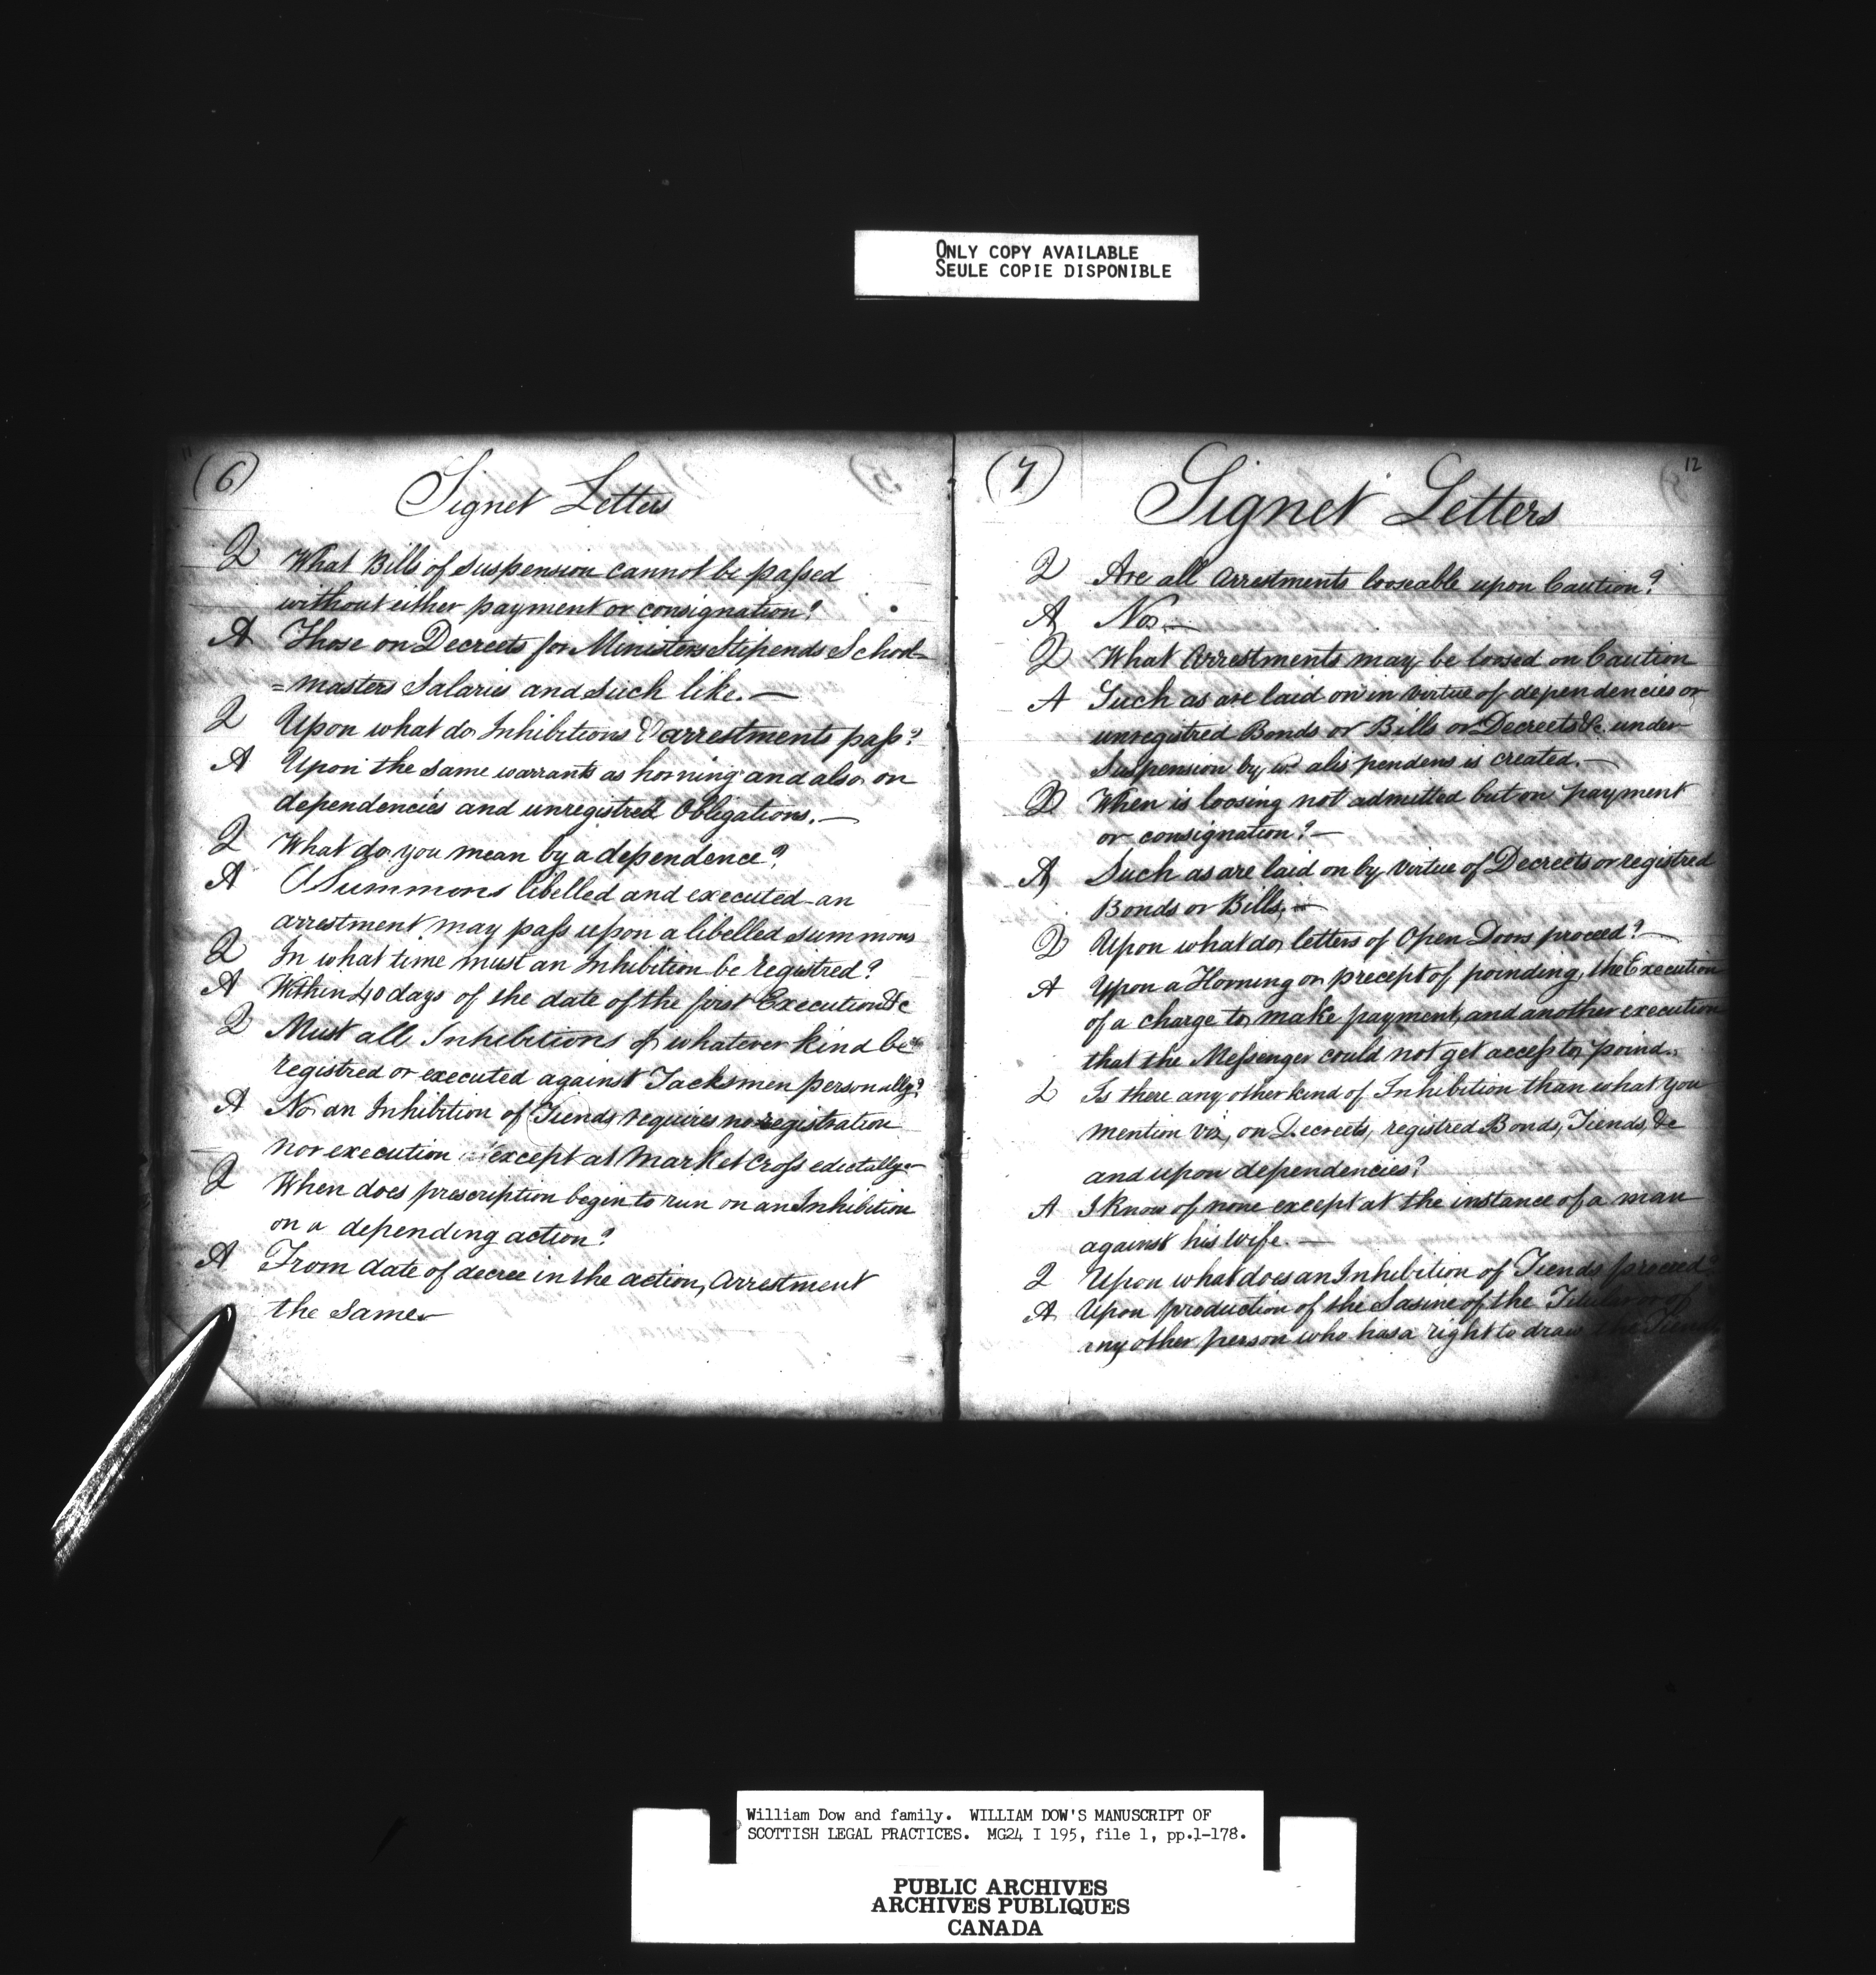 ONLY COPY AVAILABLE
SEULE COPIE DISPONIBLE
11
(6)
Signet Letters
Q What Bills of Suspension cannot be passed
without either payment or consignation?
A Those on Decreets for Ministers Stipends School-
=masters Salaries and such like. —
Q Upon what do Inhibitions & arrestments pass?
A Upon the same warrants as horning and also on
dependencies and unregistred Obligations. —
Q What do you mean by a dependence?
A A Summons libelled and executed an
arrestment may pass upon a libelled summons
Q In what time must an Inhibition be registred?
A Within 40 days of the date of the first Execution &c
Q Must all Inhibitions of whatever kind be
registred or executed against Tacksmen personally?
A No an Inhibition of Tiends requires no registration
nor execution except at Market Cross edictally
Q When does prescription begin to run on an Inhibition
on a depending action?
A From date of decree in the action, Arrestment
the same
12
(7)
Signet Letters
Q Are all Arrestments looseable upon Caution?
A No. —
Q What Arrestments may be loosed on Caution
A Such as are laid on in virtue of dependencies or
unregistred Bonds or Bills or Decreets &c. under
Suspension by wc alis pendens is created. —
Q When is loosing not admitted but on payment
or consignation? —
A Such as are laid on by virtue of Decreets or registred
Bonds or Bills, —
Q Upon what do letters of Open Doors proceed? —
A Upon a Horning or precept of poinding, the Execution
of a charge to make payment, and another execution
that the Messenger could not get access to poind.
Q Is there any other kind of Inhibition than what you
mention viz, on Decreets, registred Bonds, Tiends, &c
and upon dependencies?
A I know of none except at the instance of a man
against his wife. —
Q Upon what does an Inhibition of Tiends proceed?
A Upon production of the Sasine of the Titular or of
any other person who has a right to draw the Tiends
William Dow and family. WILLIAM DOW'S MANUSCRIPT OF
SCOTTISH LEGAL PRACTICES. MG24 I 195, file 1, pp.1-178.
PUBLIC ARCHIVES
ARCHIVES PUBLIQUES
CANADA